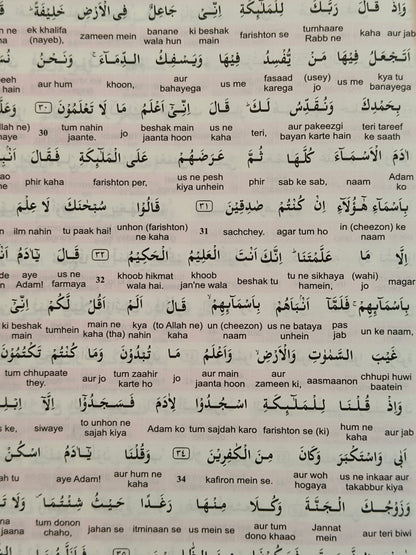 وَاِذْ قَالَ رَبُّكَ لِلْمَلٰٓئِكَةِ اِنِّىْ جَاعِلٌ فِى الْاَرْضِ خَلِيْفَةً ؕ
kaha aur jab tumhaare Rabb ne farishton se ki beshak main banane wala hun zameen mein ek khalifa (nayeb),
اَتَجْعَلُ فِيْهَا مَنْ يُّفْسِدُ فِيْهَا وَيَسْفِكُ الدِّمَآءَ ۚ وَنَحْنُ
kya tu banayega us me jo fasaad (usey) karega us me aur bahayega khoon, aur hum
بِحَمْدِكَ وَنُقَدِّسُ لَكَ ؕ قَالَ اِنِّىْٓ اَعْلَمُ مَا لَا تَعْلَمُوْنَ ﴿٣٠﴾
teri tareef ke saath aur pakeezgi bayan karte hain teri, us ne kaha beshak main jaanta hoon jo tum nahin jaante. 30
اٰدَمَ الْاَسْمَآءَ كُلَّهَا ثُمَّ عَرَضَهُمْ عَلَى الْمَلٰٓئِكَةِ فَقَالَ
Adam ko naam sab ke sab, phir us ne pesh kiya unhein farishton per, phir kaha
بِاَسْمَآءِ هٰٓؤُلَآءِ اِنْ كُنْتُمْ صٰدِقِيْنَ ﴿٣١﴾ قَالُوْا سُبْحٰنَكَ لَا عِلْمَ
naam in (cheezon) ke agar tum ho sachchey. 31 unhon (farishton) ne kaha tu paak hai! nahin ilm
اِلَّا مَا عَلَّمْتَنَا ؕ اِنَّكَ اَنْتَ الْعَلِيْمُ الْحَكِيْمُ ﴿٣٢﴾ قَالَ يٰٓاٰدَمُ
magar jo tu ne sikhaya (wahi) hamein, beshak tu khoob jan'ne wala khoob hikmat wala hai. 32 us ne farmaya aye Adam!
بِاَسْمَآئِهِمْ ۚ فَلَمَّآ اَنْۢبَاَهُمْ بِاَسْمَآئِهِمْ ۙ قَالَ اَلَمْ اَقُلْ لَّكُمْ اِنِّىْٓ
un ke naam, pas jab us ne bataya unhein un (cheezon) ke naam (to Allah ne) kaha kya nahin main ne kaha (tha) tumhein ki beshak main
غَيْبَ السَّمٰوٰتِ وَالْاَرْضِ ۙ وَاَعْلَمُ مَا تُبْدُوْنَ وَمَا كُنْتُمْ تَكْتُمُوْنَ
chhupi huwi baatein aasmaanon aur zameen ki, aur main jaanta hoon jo tum zaahir karte ho aur jo tum chhupaate they.
وَاِذْ قُلْنَا لِلْمَلٰٓئِكَةِ اسْجُدُوْا لِاٰدَمَ فَسَجَدُوْٓا اِلَّآ
aur jab hum ne kaha farishton se (ki) tum sajdah karo Adam ko to unhon ne sajah kiya siwaye
اَبٰى وَاسْتَكْبَرَ ۫ وَكَانَ مِنَ الْكٰفِرِيْنَ ﴿٣٤﴾ وَقُلْنَا يٰٓاٰدَمُ اسْكُنْ
us ne inkaar aur takabbur kiya aur woh hogaya kafiron mein se. 34 aur hum ne kaha aye Adam! tu
وَزَوْجُكَ الْجَنَّةَ وَكُلَا مِنْهَا رَغَدًا حَيْثُ شِئْتُمَا ۪
aur teri biwi Jannat mein aur tum dono khaao us mein se itminaan se jahan se tum donon chaho,